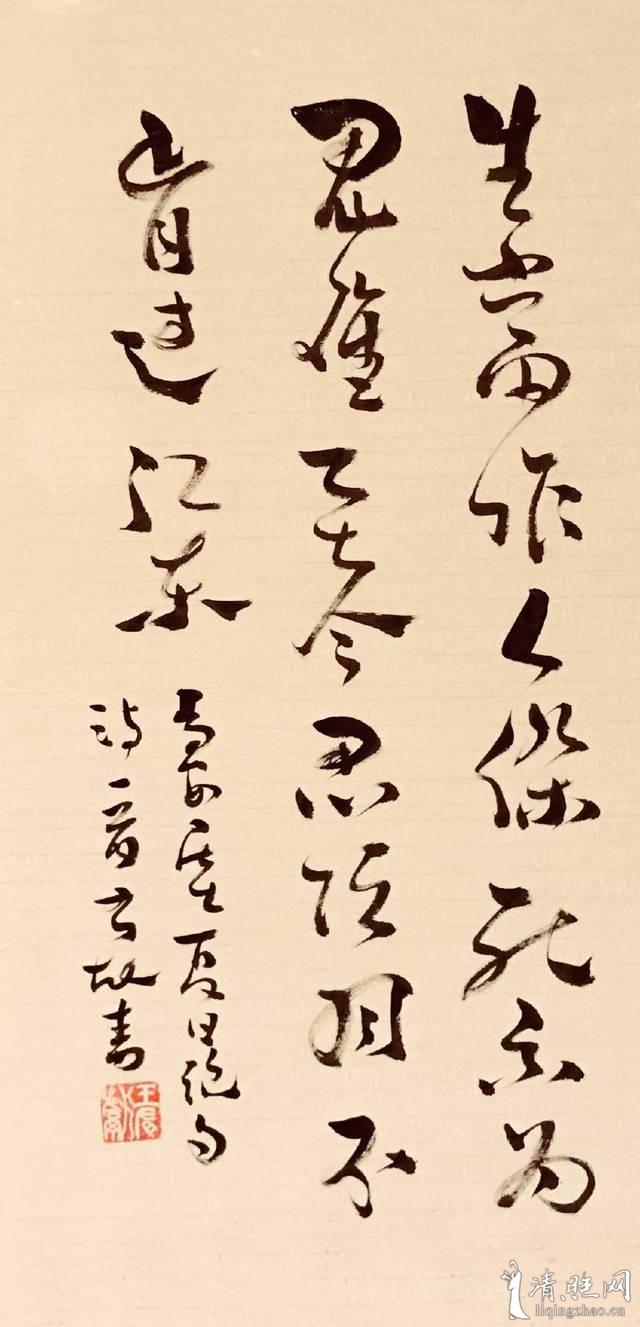 生当作人杰死亦为
鬼雄至今思项羽不
肯过江东
易安居士夏日绝句
诗一首
清旺网
liqingzhao.cn